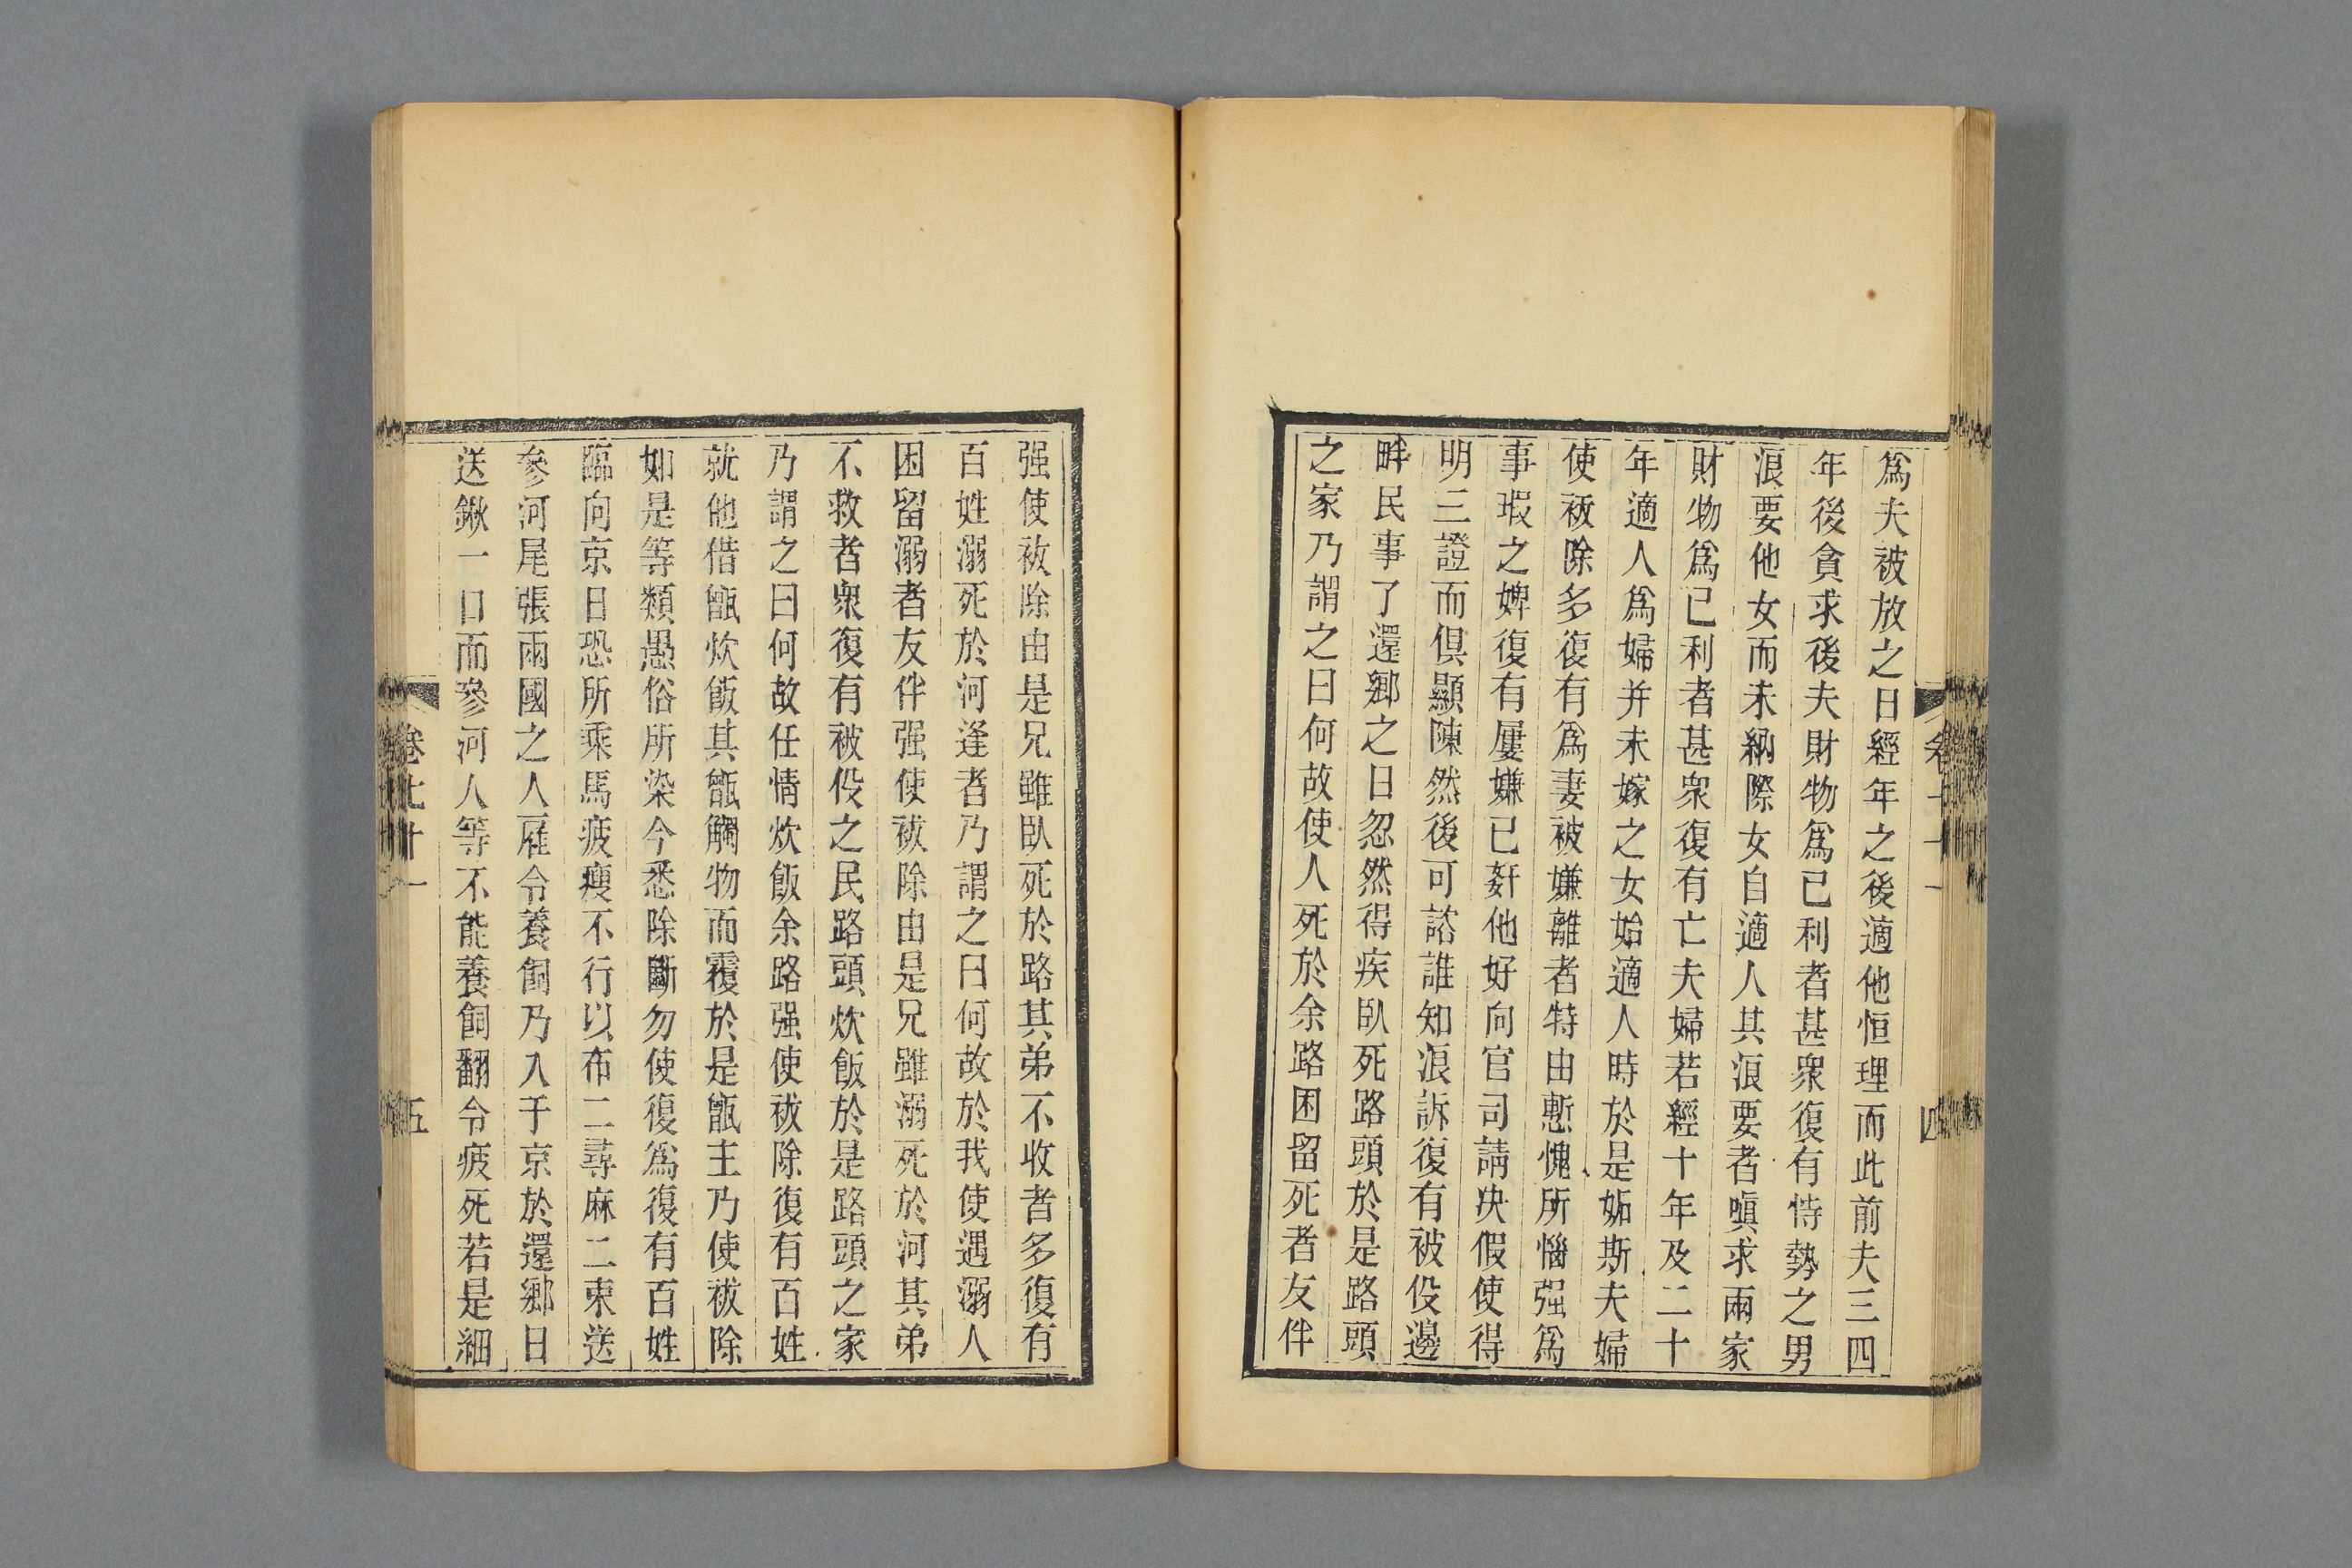 爲夫被放之日經年之後適他恒理而此前夫三四
年後貪求後夫財物爲已利者甚衆復有恃勢之男
浪要他女而未納際女自適人其浪要者嗔求兩家
財物爲已利者甚衆復有亡夫婦若經十年及二十
年適人爲婦并未嫁之女始適人時於是妬斯夫婦
使秡除多復有爲妻被嫌離者特由慙愧所惱强爲
事瑕之婢復有屢嫌已姧他好向官司請决假使得
明三證而俱顯陳然後可諮誰知浪訴復有被役邊
畔民事了還鄉之日忽然得疾臥死路頭於是路頭
之家乃謂之曰何故使人死於余路因留死者友伴
强使祓除由是兄雖臥死於路其弟不收者多復有
百姓溺死於河逢者乃謂之曰何故於我使遇溺人
因留溺者友伴强使祓除由是兄雖溺死於河其弟
不救者衆復有被役之民路頭炊飯於是路頭之家
乃謂之曰何故任情炊飯余路强使祓除復有百姓
就他借甑炊飯其甑觸物而覆於是甑主乃使祓除
如是等類愚俗所染今悉除斷勿使復爲復有百姓
臨向京日恐所乘馬疲瘦不行以布二尋麻二束送
參河尾張兩國之人雇令養飼乃入于京於還鄉日
送鍬一口而參河人等不能養飼翻令疲死若是細
五
四